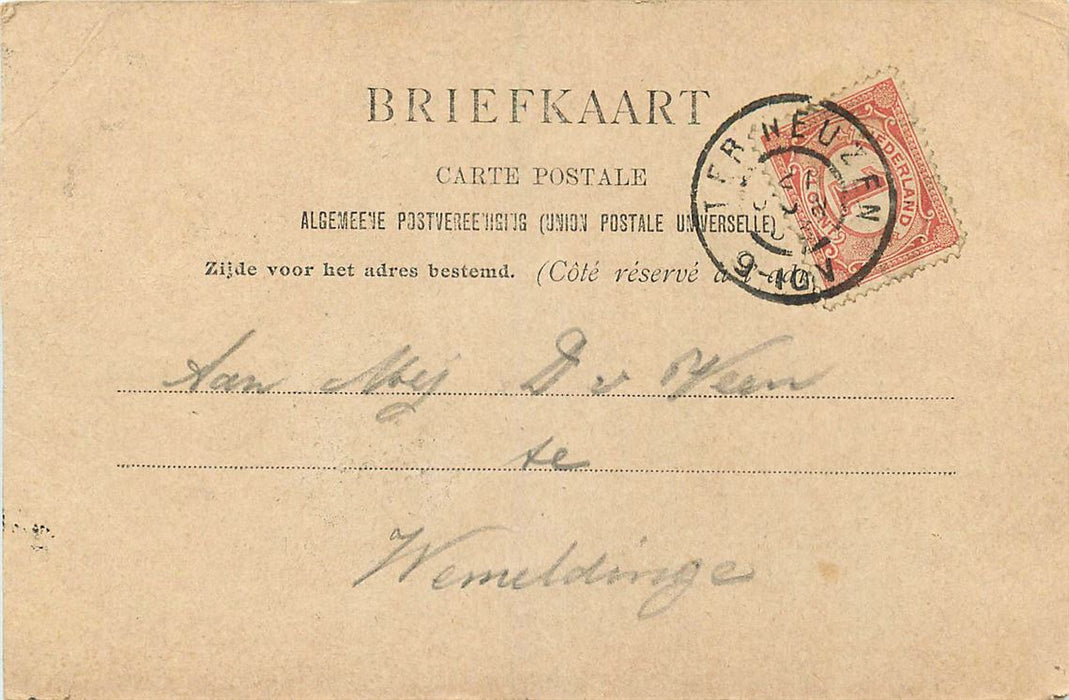 BRIEFKAART
CARTE POSTALE
ALGEMEENE POSTVEREENIGING (UNION POSTALE UNIVERSELLE)
Zijde voor het adres bestemd. (Côté réservé à
TER NEUZEN
9-10V
NEDERLAND
1
Aan Mej D v Veen
te
Wemeldinge